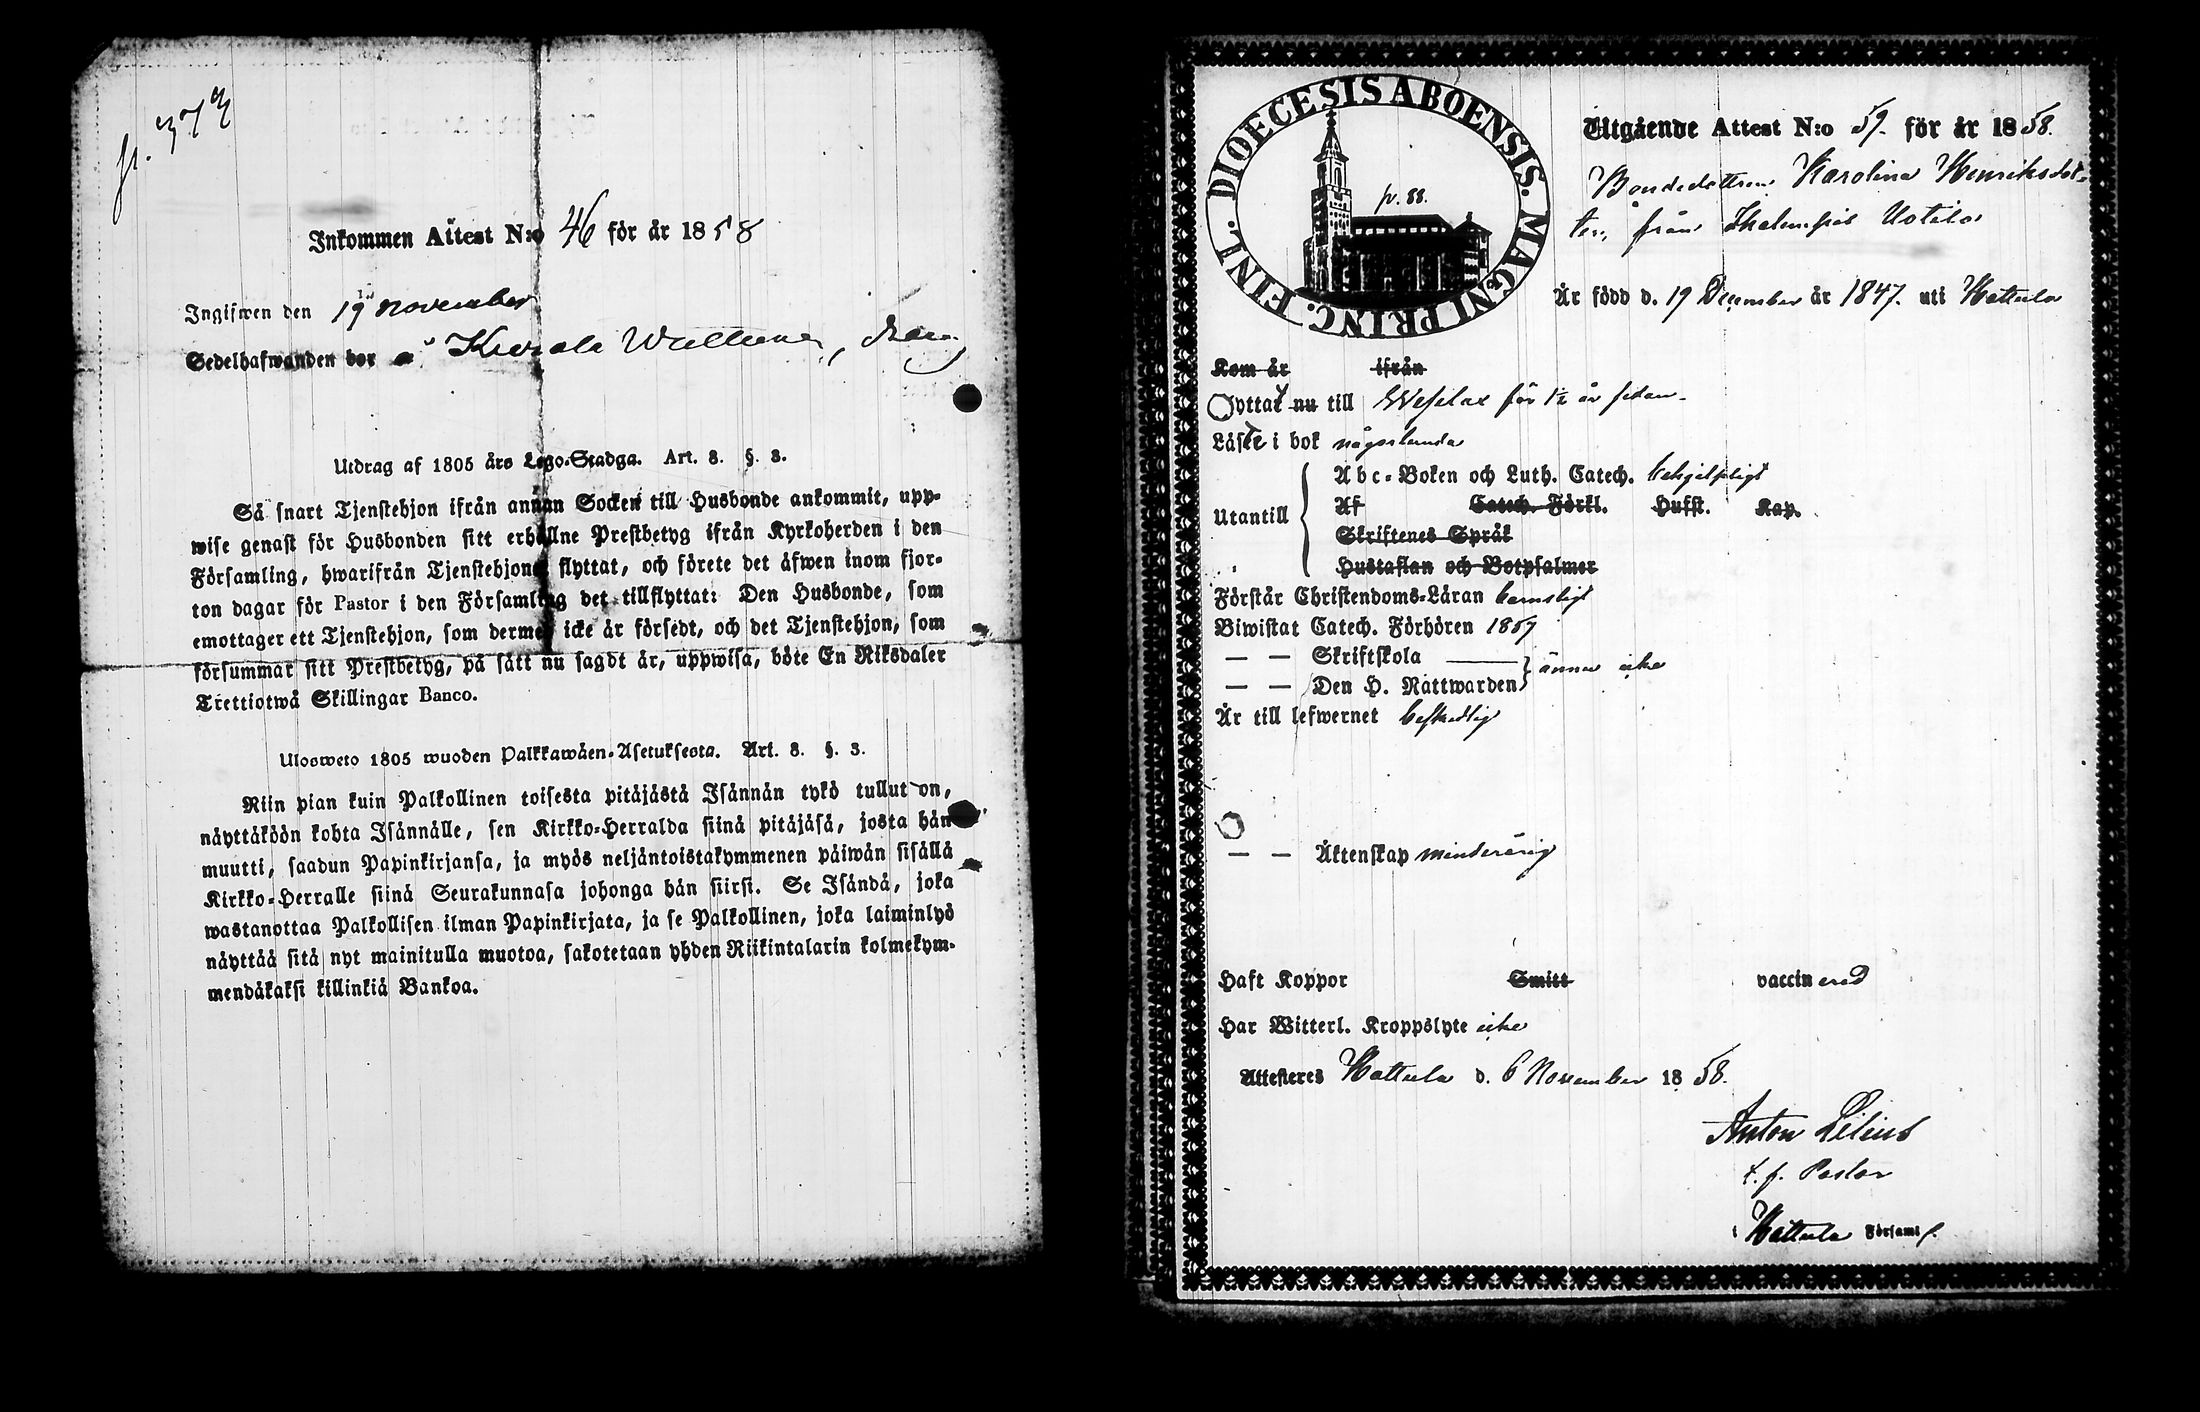 p. 373
Inkommen Attest N:o 46 för år 1858
Ingifwen den 19 november
Sedelhafwanden bor å
Utdrag af 1805 års Lego-Stadga. Art. 8. §. 3.
Så snart Tjenstehjon ifrån annan Socken till Husbonde ankommit, upp-
wise genast för Husbonden sitt erhållne Prestbetyg ifrån Kyrkoherden i den
Församling, hwarifrån Tjenstehjonet flyttat, och förete det äfwen inom fjor-
ton dagar för Pastor i den Församling det tillflyttat: Den Husbonde, som
emottager ett Tjenstehjon, som dermed icke är försedt, och det Tjenstehjon, som
försummar sitt Prestbetyg, på sätt nu sagdt är, uppwisa, böte En Riksdaler
Trettiotwå Skillingar Banco.
Ulosweto 1805 wuoden Palkkawäen-Asetuksesta. Art. 8. §. 3.
Niin pian kuin Palkollinen toisesta pitäjästä Isännän tykö tullut on,
näyttäköön kohta Isännälle, sen Kirkko-Herralda siinä pitäjäsä, josta hän
muutti, saadun Papinkirjansa, ja myös neljäntoistakymmenen päiwän sisällä
Kirkko-Herralle siinä Seurakunnasa johonga hän siirsi. Se Isändä, joka
wastanottaa Palkollisen ilman Papinkirjata, ja se Palkollinen, joka laiminlyö
näyttää sitä nyt mainitulla muotoa, sakotetaan yhden Riikintalarin kolmekym-
mendäkaksi killinkiä Bankoa.
DIOECESIS ABOENSIS. MAGNI PRINC. FINL.
p. 88.
Utgående Attest N:o 59. för år 1858.
Bondedottren Karolina Henriksdot-
ter, från Uotila
Är född d. 19 December år 1847. uti Hattula
Kom år ifrån
Flyttat nu till Wesilax för 1½ år sedan.
Läste i bok någorlunda
Utantill
Abc-Boken och Luth. Catech. behjelpligt
Af Catech. Förkl. Hufst. Kap.
Skriftenes Språk
Hustaflan och Botpsalmer
Förstår Christendoms-Läran barnsligt
Biwistat Catech. Förhören 1857
— — Skriftskola ——
— — Den H. Nattwarden ännu icke
Är till lefwernet beskedlig
— — Äktenskap minderårig
Haft Koppor Smitt vaccinered
Har Witterl. Kroppslyte icke
Attesteres Hattula d. 6 November 1858.
Anton Lilius
t. f. Pastor
i Hattula Församl.